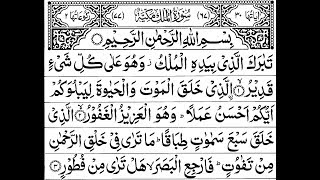 اٰیَاتُهَا ٣٠ (٦٧) سُوْرَةُ الْمُلْكِ مَكِّيَّةٌ (٧٧) رُكُوْعَاتُهَا ٢
بِسْمِ اللّٰهِ الرَّحْمٰنِ الرَّحِيْمِ
تَبٰرَكَ الَّذِيْ بِيَدِهِ الْمُلْكُ ز وَهُوَ عَلٰى كُلِّ شَيْءٍ
قَدِيْرُ ۨ ﴿١﴾ الَّذِيْ خَلَقَ الْمَوْتَ وَالْحَيٰوةَ لِيَبْلُوَكُمْ
اَيُّكُمْ اَحْسَنُ عَمَلًا ؕ وَهُوَ الْعَزِيْزُ الْغَفُوْرُ ﴿٢﴾ الَّذِيْ
خَلَقَ سَبْعَ سَمٰوٰتٍ طِبَاقًا ؕ مَا تَرٰى فِيْ خَلْقِ الرَّحْمٰنِ
مِنْ تَفٰوُتٍ ؕ فَارْجِعِ الْبَصَرَ ۙ هَلْ تَرٰى مِنْ فُطُوْرٍ ﴿٣﴾